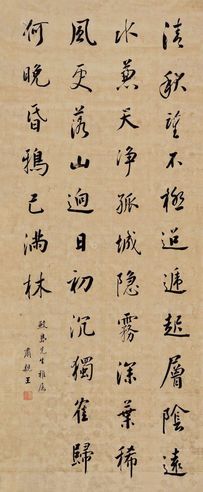 清秋望不極迢遞起層陰遠
水兼天淨孤城隱霧深葉稀
風更落山迥日初沉獨隺歸
何晚昏鴉已滿林
先生雅屬
肅親王